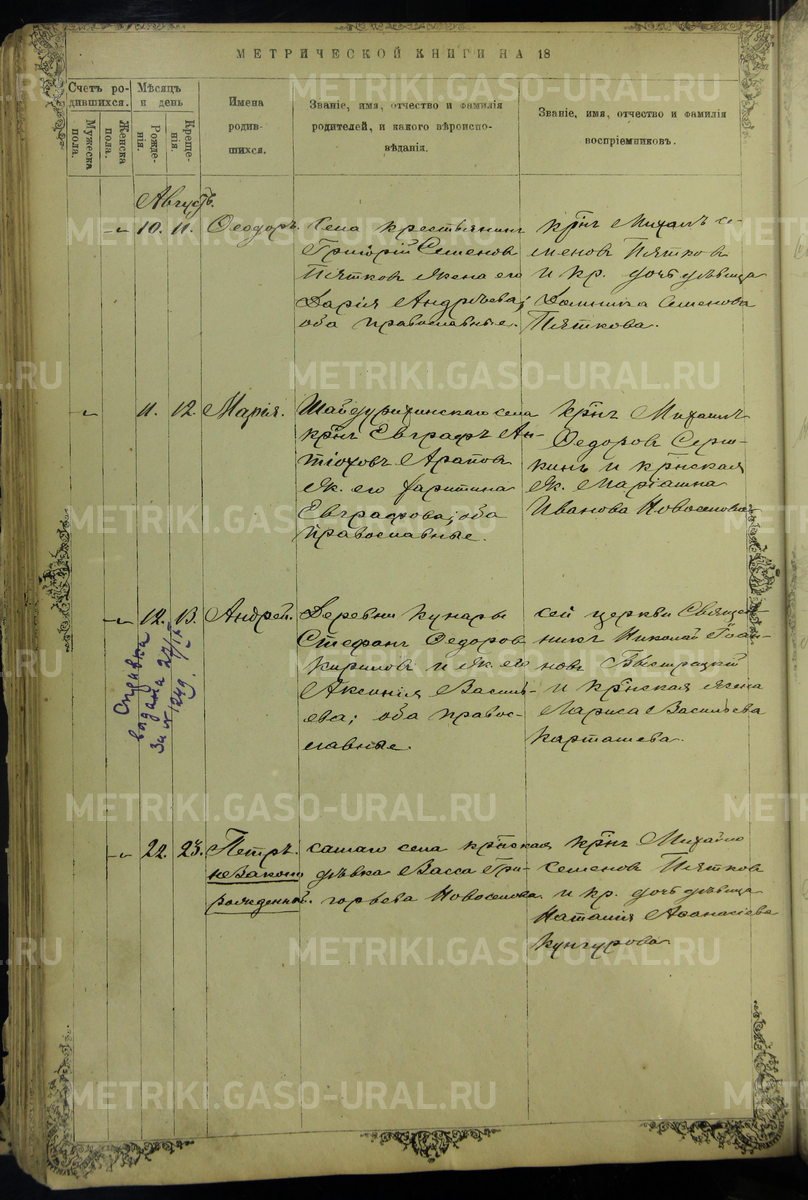 МЕТРИЧЕСКОЙ КНИГИ НА 18
Счетъ ро-
дившихся.
Мужеска
пола.
Женска
пола.
Мѣсяцъ
и день
Рожде-
нія.
Креще-
нія.
Имена
родив-
шихся.
Званіе, имя, отчество и фамилія
родителей, и какого вѣроиспо-
вѣданія.
Званіе, имя, отчество и фамилія
воспріемниковъ.
Августъ.
10. 11. Ѳеодоръ.
Села крестьянинъ
Григорій Семенов
Пятков жена его
Дарія Андрѣева;
оба православные.
крнъ Михаилъ Се-
менов Пятков
и кр. дочь дѣвица
Домника Семенова
Пяткова.
11. 12. Марія.
Шайдурихинскаго села
крнъ Евграфъ Ан-
тіоховъ Арапов
ж. его Харитина
Евграфова; оба
православные.
крнъ Михаилъ
Ѳедоров
кинъ и крнская
ж. Маріамна
Иванова Новоселова
12. 13. Андрей.
Деревни Кунары
Стефанъ Ѳедоров
Кирилов и ж. его
Аксинія Василь-
ева; оба право-
славные.
сей церкви Священ-
никъ Николай Іоан-
новъ Быстрицкій
и крнская жена
Лариса Васильева
Карташева.
Справка
выдана
за № 1249
22. 23. Петръ.
незаконно
рожденный.
самаго села крнская
дѣвка Васса Гри-
горьева Новоселова.
крнъ Михаило
Семенов Пятков
и кр. дочь дѣвица
Наталія Аѳанасіева
Кунгурова
METRIKI.GASO-URAL.RU